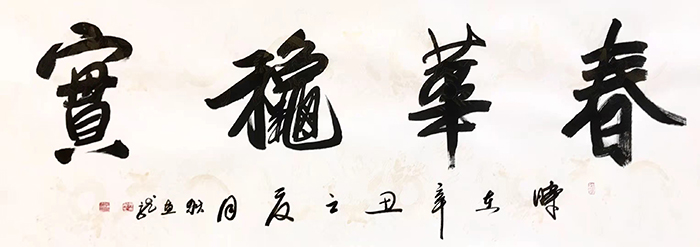 春華龝實
時在辛丑之夏月